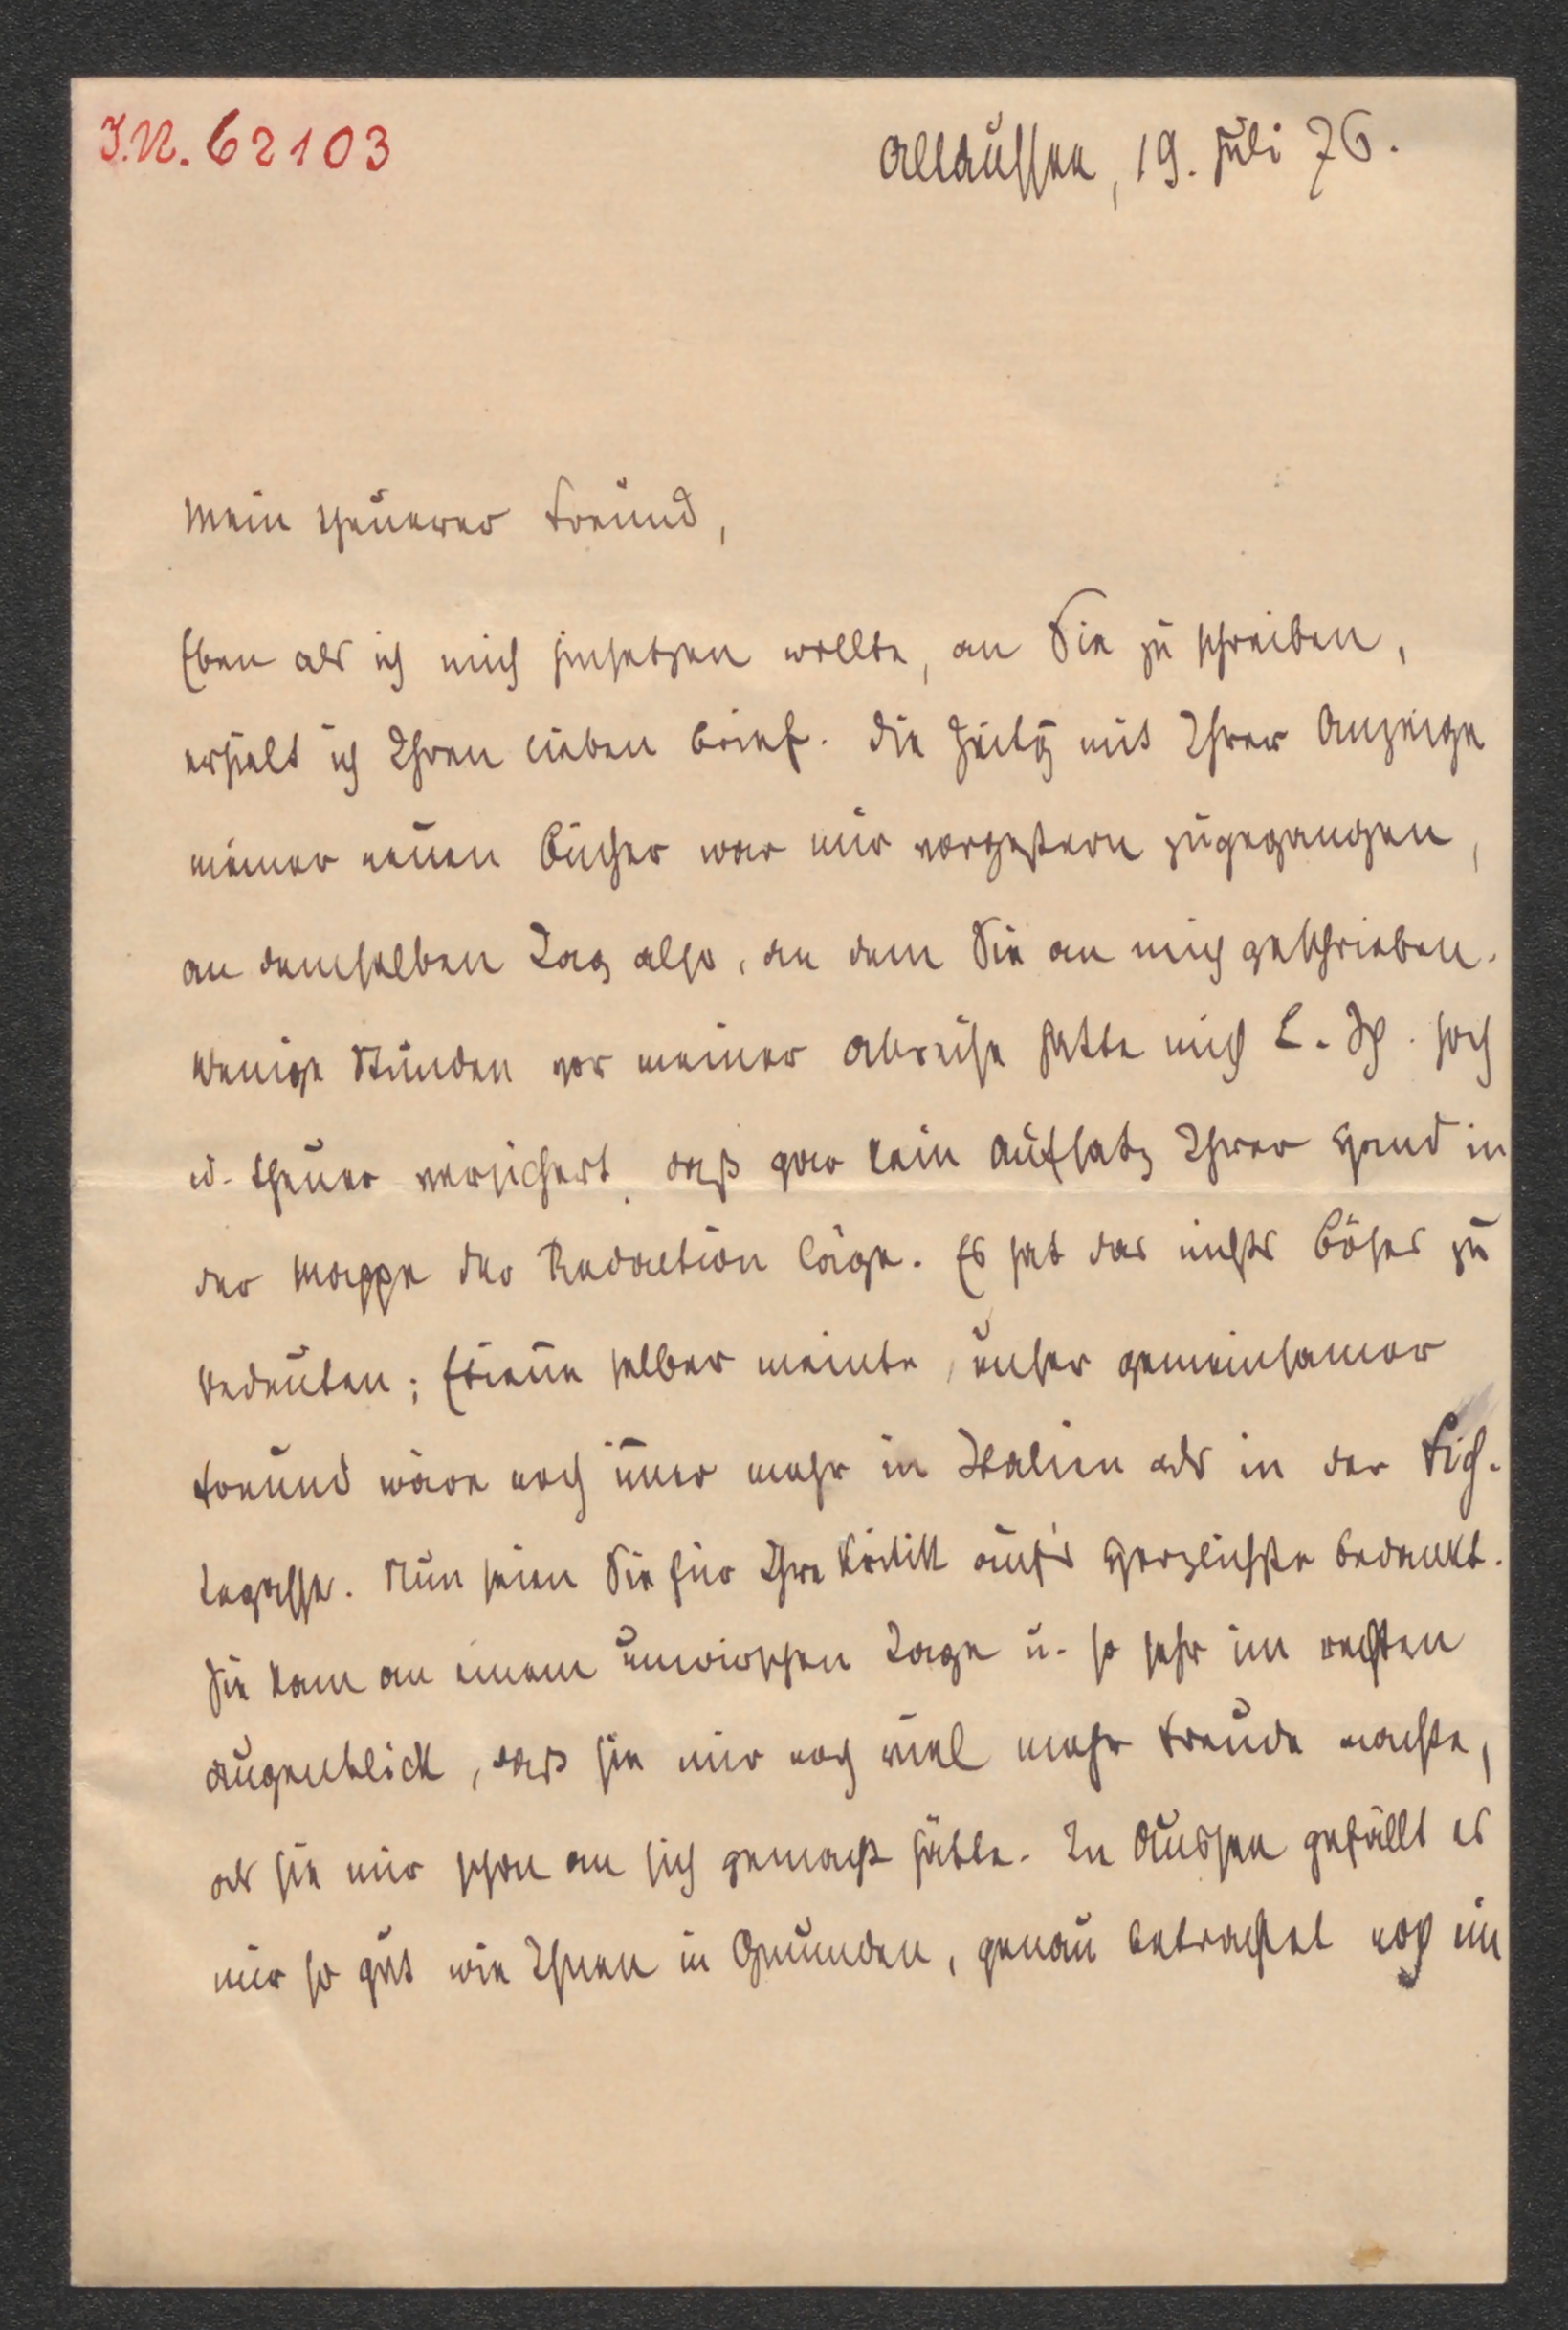 I.N. 62103
Altaussee, 19. Juli 76.
Mein theuerer Freund,
Eben als ich mich hinsetzen wollte, an Sie zu schreiben,
erhielt ich Ihren lieben Brief. Die Zeitg mit Ihrer Anzeige
meiner neuen Bücher war mir vorgestern zugegangen,
an demselben Tag also, an dem Sie an mich geschrieben.
Wenige Stunden vor meiner Abreise hatte mich L. Sp. hoch
u. theuer versichert, daß gar kein Aufsatz Ihrer Hand in
der Mappe der Redaction läge. Es hat das nichts Böses zu
bedeuten; Etienne selber meinte, unser gemeinsamer
Freund wäre noch im̄er mehr in Italien als in der Fich-
tegasse. Nun seien Sie für Ihre Kritik auf's Herzlichste bedankt.
Sie kam an einem unwirschen Tage u. so sehr im rechten
Augenblick, daß sie mir noch viel mehr Freude machte,
als sie mir schon an sich gemacht hätte. In Aussee gefällt es
mir so gut wie Ihnen in Gmunden, genau betrachtet noch im